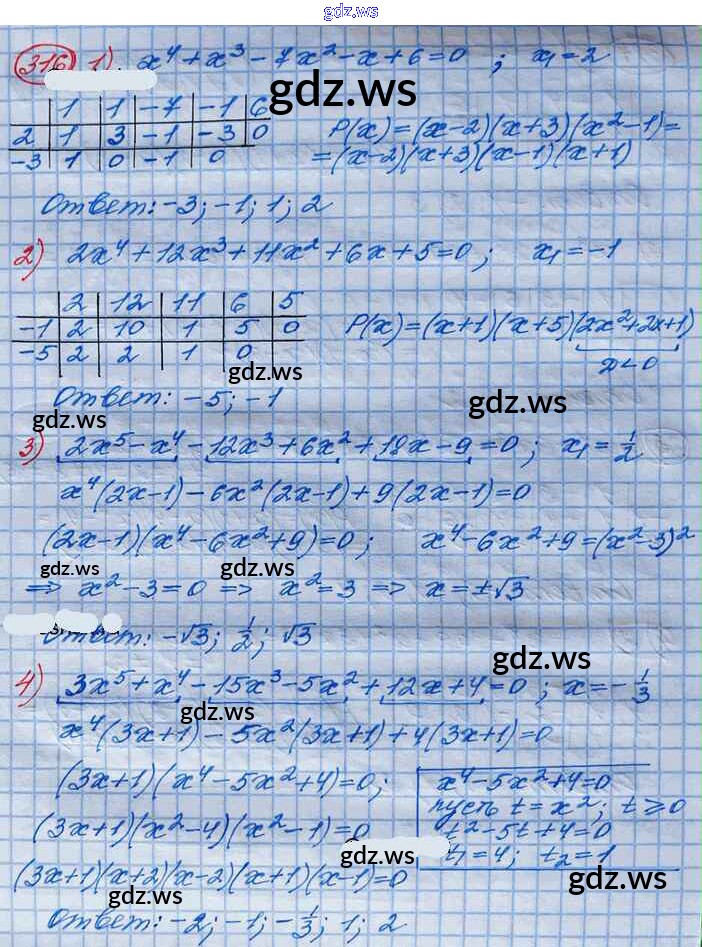 gdz.ws
316 1) x⁴ + x³ - 7x² - x + 6 = 0 ; x₁ = 2
gdz.ws
1 1 -7 -1 6
2 1 3 -1 -3 0
-3 1 0 -1 0
P(x) = (x-2)(x+3)(x²-1) =
= (x-2)(x+3)(x-1)(x+1)
Ответ: -3; -1; 1; 2
2) 2x⁴ + 12x³ + 11x² + 6x + 5 = 0 ; x₁ = -1
2 12 11 6 5
-1 2 10 1 5 0
-5 2 2 1 0
P(x) = (x+1)(x+5)(2x²+2x+1)
D < 0
gdz.ws
Ответ: -5; -1
gdz.ws
gdz.ws
3) 2x⁵ - x⁴ - 12x³ + 6x² + 18x - 9 = 0 ; x₁ = 1/2
x⁴(2x-1) - 6x²(2x-1) + 9(2x-1) = 0
(2x-1)(x⁴ - 6x² + 9) = 0 ; x⁴ - 6x² + 9 = (x²-3)²
gdz.ws
gdz.ws
=> x² - 3 = 0 => x² = 3 => x = ±√3
Ответ: -√3; 1/2; √3
gdz.ws
4) 3x⁵ + x⁴ - 15x³ - 5x² + 12x + 4 = 0 ; x = -1/3
gdz.ws
x⁴(3x+1) - 5x²(3x+1) + 4(3x+1) = 0
(3x+1)(x⁴ - 5x² + 4) = 0;
(3x+1)(x²-4)(x²-1) = 0
x⁴ - 5x² + 4 = 0
пусть t = x²; t ≥ 0
t² - 5t + 4 = 0
t₁ = 4; t₂ = 1
gdz.ws
(3x+1)(x+2)(x-2)(x+1)(x-1) = 0
gdz.ws
gdz.ws
Ответ: -2; -1; -1/3; 1; 2
gdz.ws